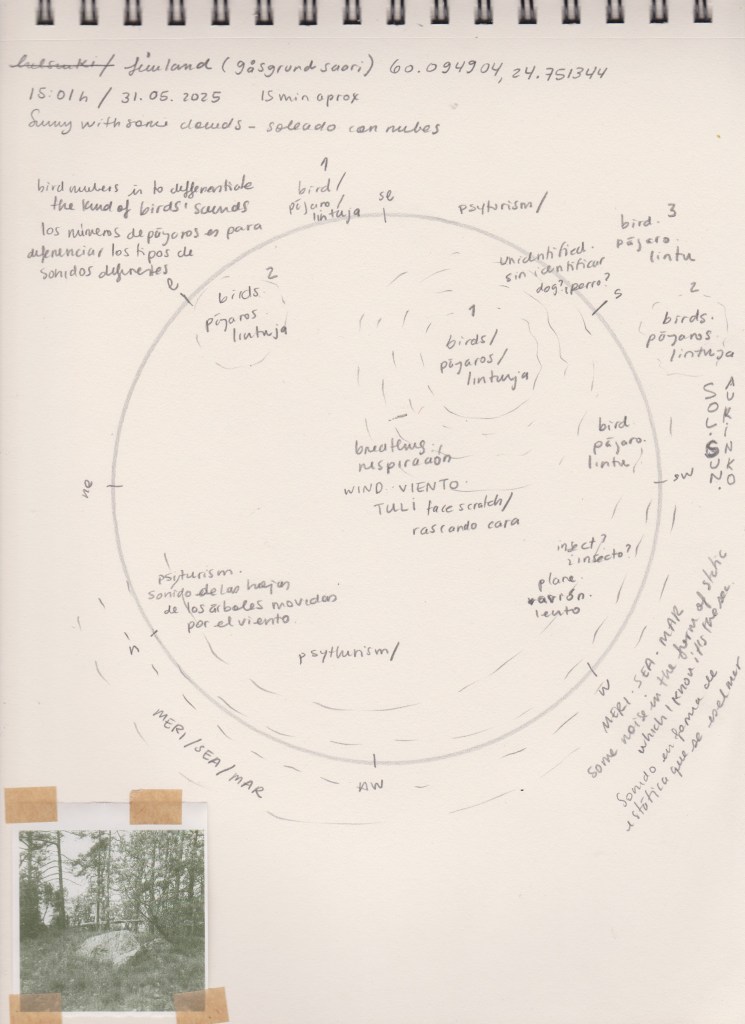 helsinki/ finland (gåsgrund saari) 60.094904, 24.751344
15:01h / 31.05.2025 15 min aprox
Sunny with some clouds - soleado con nubes
bird numbers is to differentiate
the kind of birds' sounds
los números de pájaros es para
diferenciar los tipos de
sonidos diferentes
1
bird/
pájaro/
lintuja
se
psyturism/
bird. 3
pájaro.
lintu
unidentified.
sin identificar
dog? ¿perro?
e
2
birds.
pájaros.
lintuja
s
1
birds/
pájaros/
lintunja
2
birds.
pájaros.
lintuja
AURINKO
SOL. SUN.
bird.
pájaro.
lintu
breathing.
respiración
WIND. VIENTO.
TULI face scratch/
rascando cara
ne
sw
insect?
¿insecto?
plane.
avión.
lento
psyturism.
sonido de las hojas
de los árboles movidas
por el viento.
n
psythurism/
w
MERI. SEA. MAR
some noise in the form of static
which I know it's the sea.
Sonido en forma de
estática que se es el mar
MERI/SEA/MAR
nw